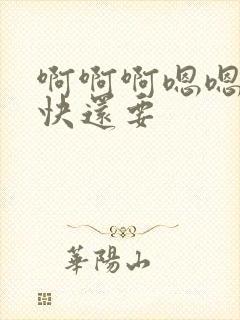 啊啊啊嗯嗯
快還要
華陽山